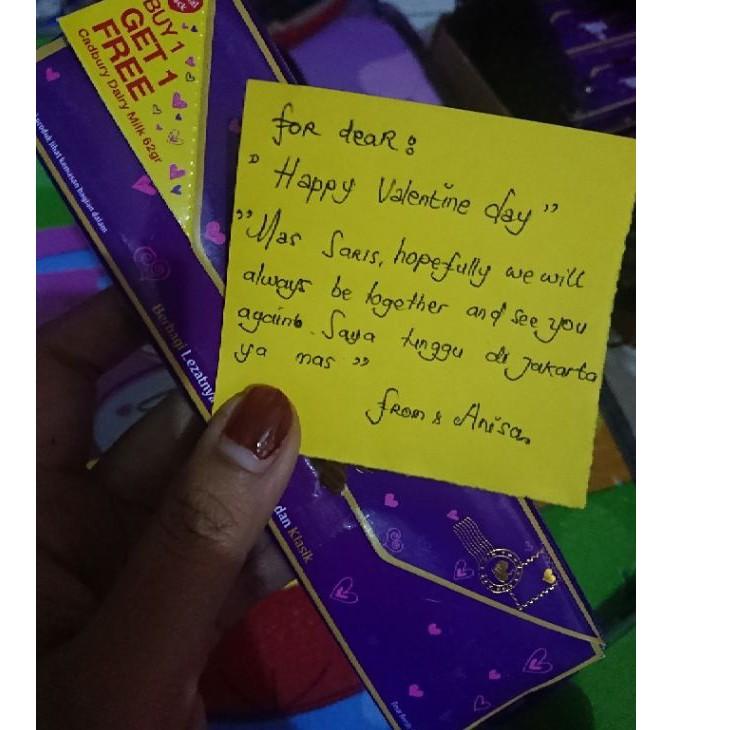 BUY 1
GET 1
FREE
Cadbury Dairy Milk 62gr
produk lihat kemasan bagian dalam
Berbagi Lezatnya
dan Klasik
for dear :
" Happy Valentine day "
"Mas Saris, hopefully we will
always be together and see you
again. Saya tunggu di Jakarta
ya mas "
from : Anisa